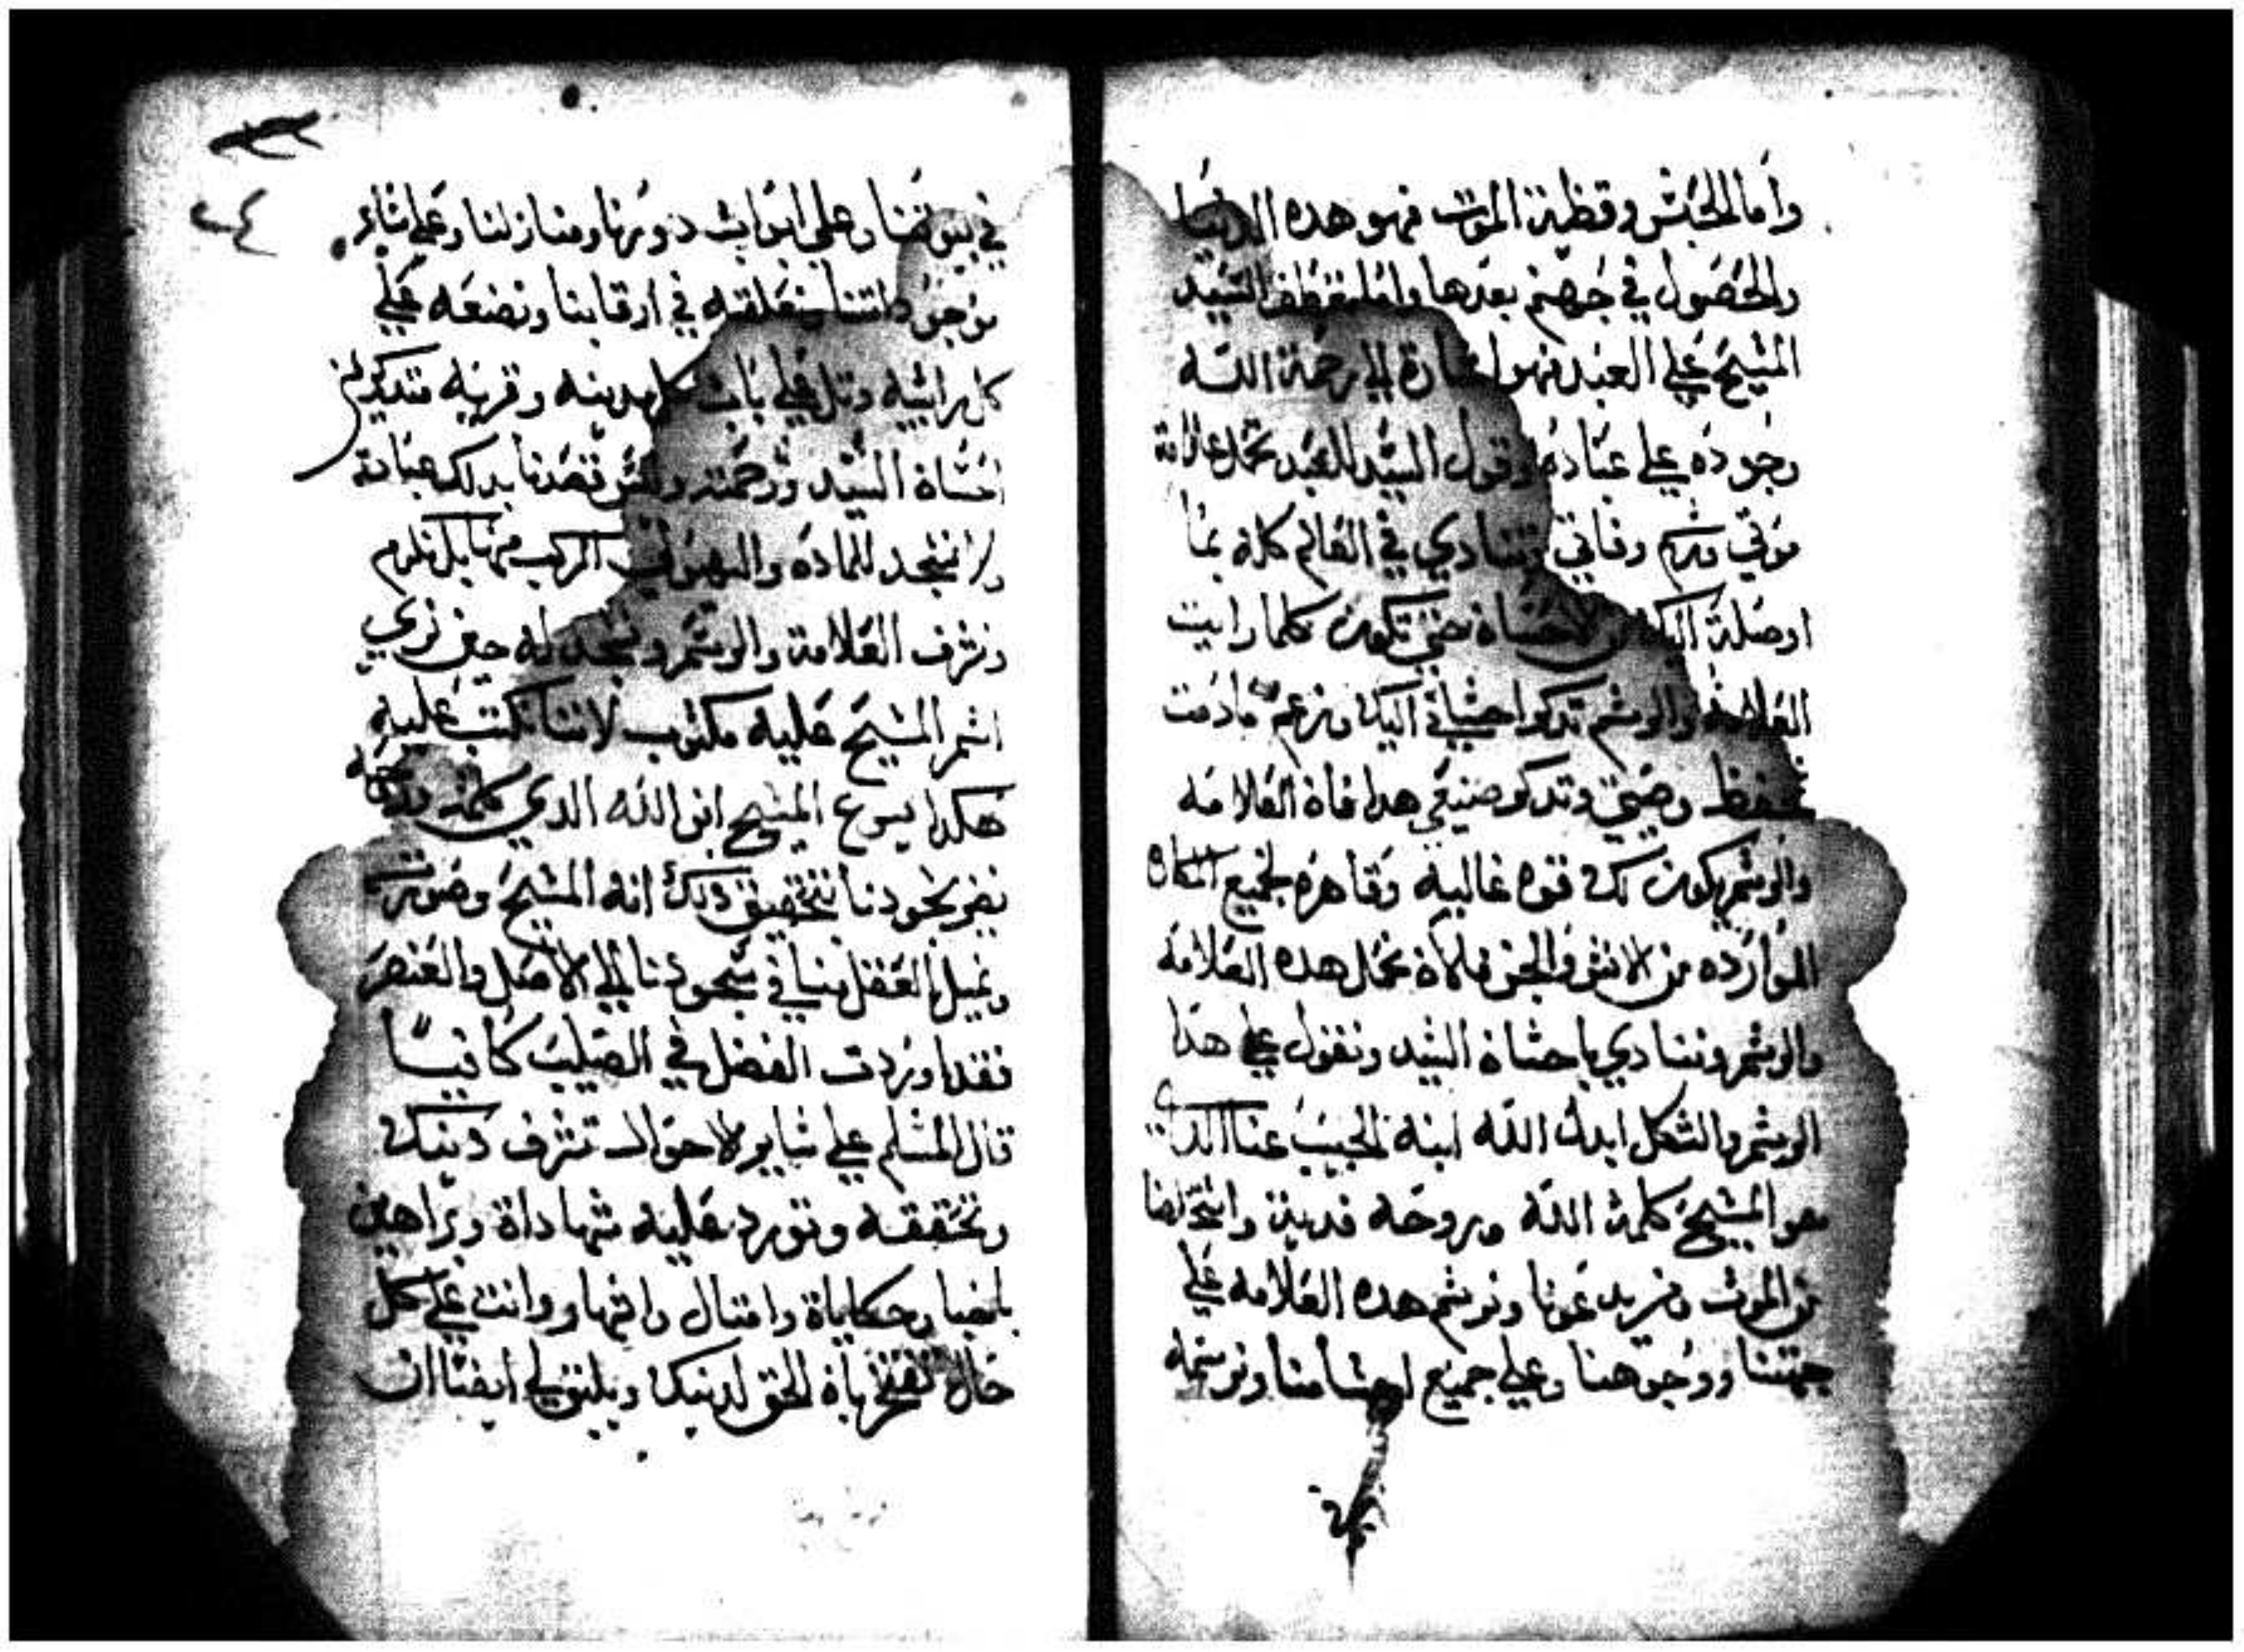 واما الحبس وقطية الموت فهو هده الدنيا
والحصول في جهنم بعدها واما تعطف السيد
المسيح علي العبد فهو اشارة الي رحمة الله
وجوده علي عباده وقول السيد للعبد تحمل علامة
موتي ورسم وفاتي وتنادي في العالم كله بما
اوصلته اليك من الاحسان حتي تكون كلما رايت
العلامة والرسم تدكر احساني اليك ونزعم مادمت
تحفظ وصيتي وتدكر صنيعي هدا فان العلامه
والرسم يكون لك قوه غالبيه وقاهره لجميع
الموارده من الانس والجن فلان نحمل هده العلامه
والرسم وننادي باحسان السيد ونقول علي هدا
الرسم والشكل ابدل الله ابنه الحبيب عنا الدي
هو المسيح كلمة الله وروحه فدية
من الموت ونريد عونا ونرسم هده العلامه علي
جبهتنا ووجوهنا وعلي جميع اجسامنا ونرسمه
٢٤
في بيوتنا وعلي ابواب دورنا ومنازلنا وعلي ساير
موجوداتنا ونعلقه في ارقابنا ونضعه علي
كل رابيه وتل وعلي باب كل مدينه وقريه متدكرين
احسان السيد ورحمته وليس قصدنا بدلك عبادة
ولا نسجد للماده والهيولي المركب منها بل نلزم
ونشرف العلامة والرسم ونسجد له حين نري
اسم المسيح عليه مكتوب لاننا نكتب عليه
هكدا يسوع المسيح ابن الله الدي كلمته وروحه
نحن بسجودنا نتحقق دلك انه المسيح وصورته
ونميل بالعقل منا في سجودنا الي الاصل والعنصر
فقد اوردت الفضل في الصليب كافيا
قال المسلم علي ساير الاحوال تشرف دينك
وتحققه وتورد عليه شهاداة وبراهين
باخبار وحكاياة وامتال واشهار وانت علي كل
حال تفتخر بان الحق لدينك ويليق لي ايضا ان